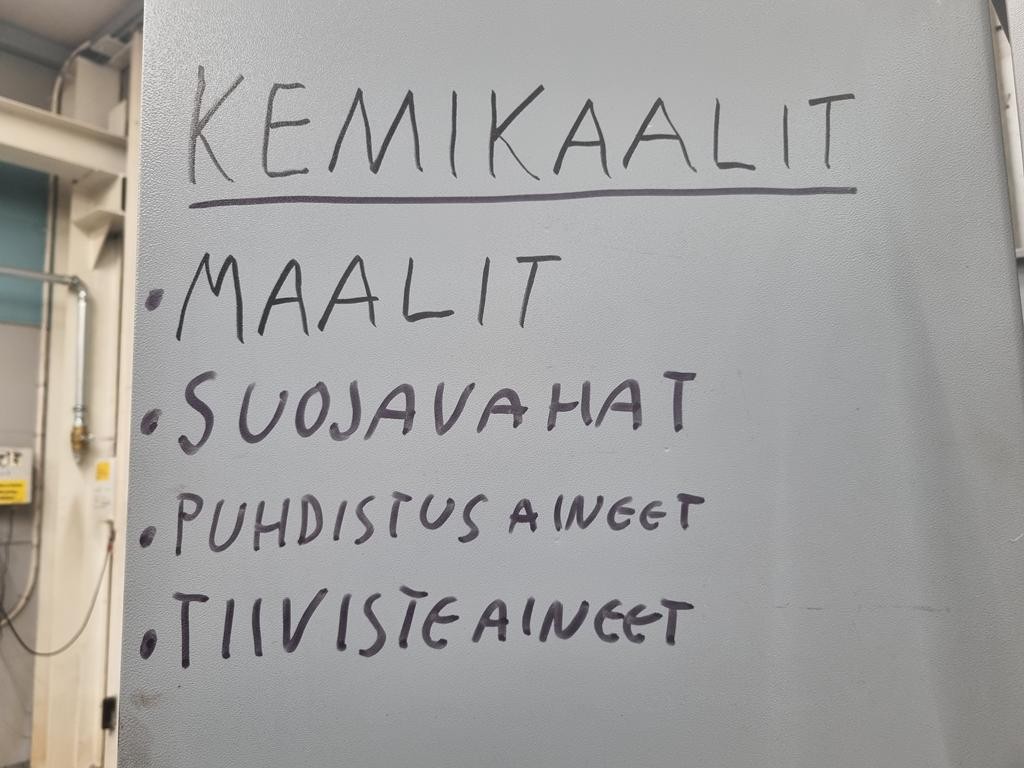 KEMIKAALIT
• MAALIT
• SUOJAVAHAT
• PUHDISTUSAINEET
• TIIVISTEAINEET